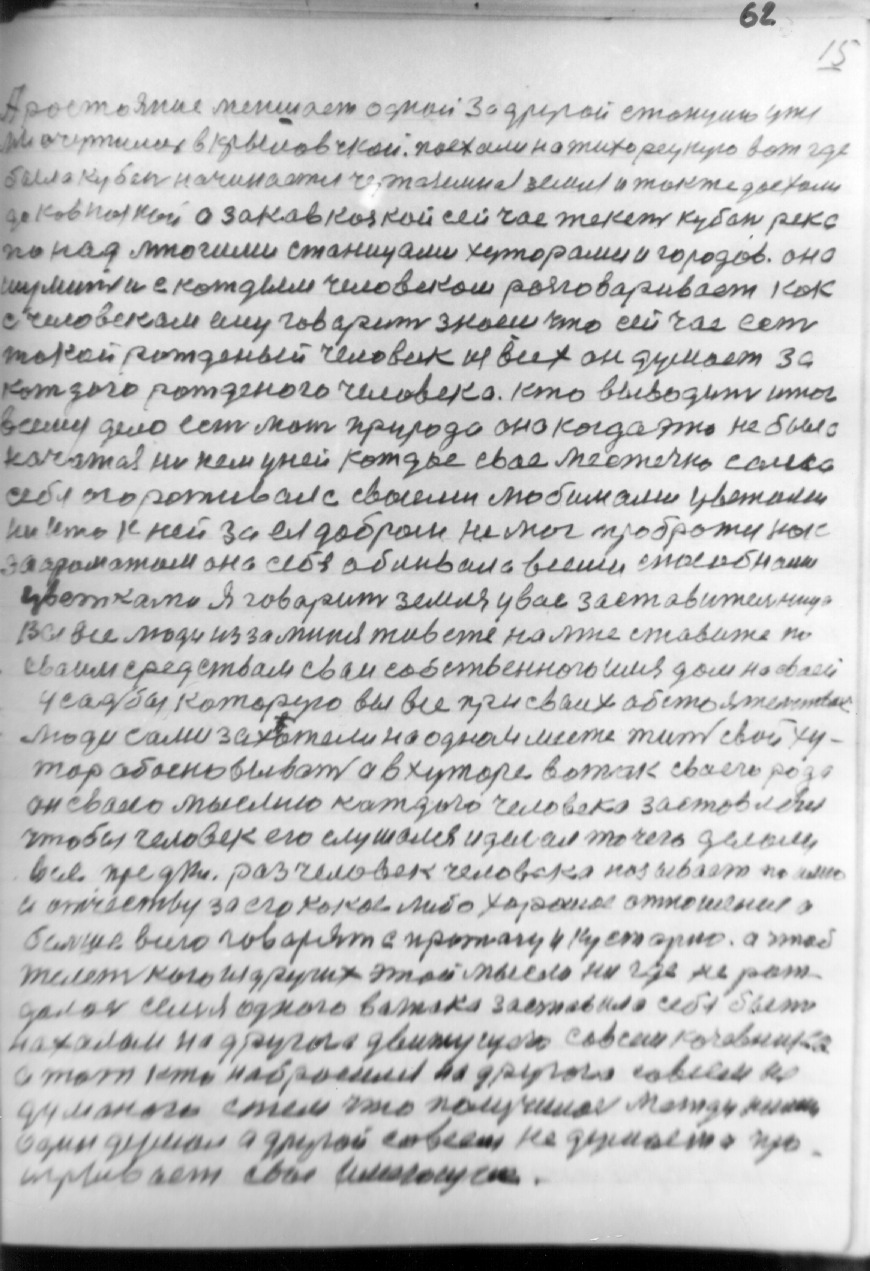 62
15
А ростояние меншает одной за другой станцию уже
мы очутилис в крыловчкой. поехали на тихорецкую вот где
была кубан начинается земля и также доехали
до кавказкой а за кавкозкой сейчас текет кубан река
по над многими станицами хуторами и городов. она
шумит и с кождым человеком розговаривает как
с человеком ему говарит знаеш что сейчас ест
токой рожденый человек из всех он думает за
кождого рожденого человека. кто выводит итог
всему дело ест мат природа она когда это не была
качатая ни кем у ней кождое свае местечко сама
себя огораживала с своеми любимами цветами
ни кто к ней за ея добром не мог
за ароматом она себя обливала всеми способнами
цветками Я говарит земля у вас заставителница
Вы все люди из за миня живете на мне ставите по
сваим средствам сваи собственного имя дом на сваей
усадбы которую вы все при сваих обстоятелствах
люди сами захотели на одном месте жит свой ху-
тор абосновыват а в хуторе вожак своего рода
он сваею мыслию каждого человека заставлял
чтобы человек его слушался и делал то чего делали
все предки. раз человек человека называет по имю
и отчеству за его какое либо хорошое отношение а
болше всего говарят с протачу и кустарно. а чтоб
желет кого из других этой мысли ни где не рож-
далос семя одного вожака заставила себя быт
нахалам на другога движущего совсем кочевника
а тот кто набросился на другого совсем не
думаного с тем что получилос между ними
один думал а другой совсем не думает а про-
игривает свае